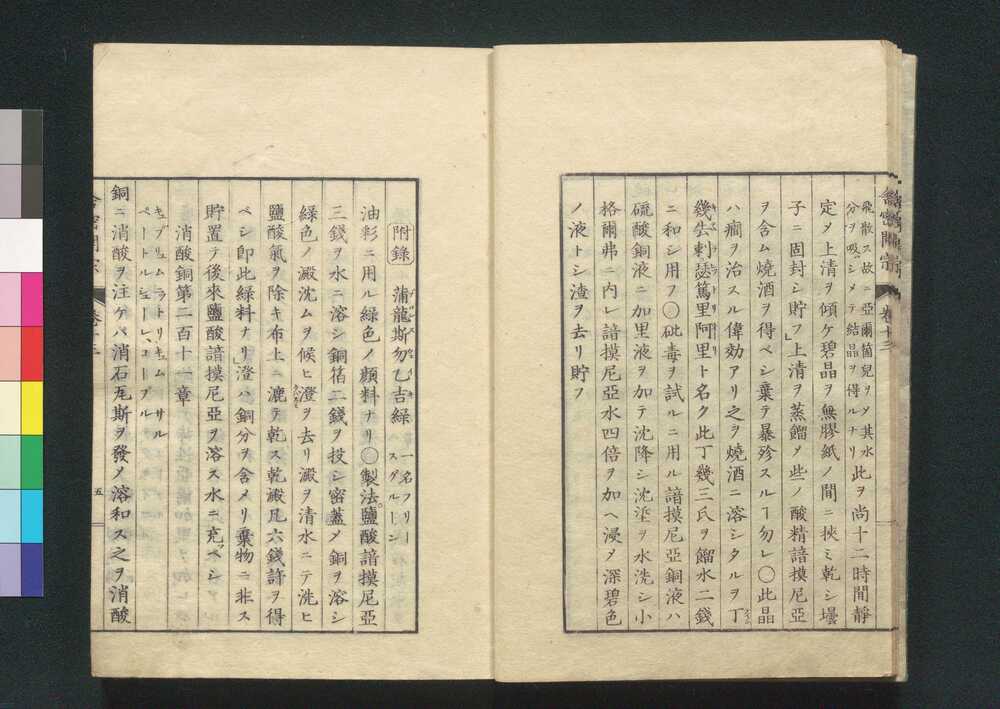 飛散ス故ニ亞爾箇兒ヲ〆其水
分ヲ吸シメテ結晶ヲ得ルナリ
此ヲ尚十二時間靜
定〆上清ヲ傾ケ碧晶ヲ無膠紙ノ間ニ挾ミ乾シ壜
子ニ固封シ貯フ」上清ヲ蒸餾〆些ノ酸精諳摸尼亞
ヲ含ム燒酒ヲ得ベシ棄テ暴殄スルヿ勿レ〇此晶
ハ癇ヲ治スル偉効アリ之ヲ燒酒ニ溶シタルヲ丁
幾去剌瑟篤里阿里ト名ク此丁幾三氏ヲ餾水二錢
ニ和シ用フ〇砒毒ヲ試ルニ用ル諳摸尼亞銅液ハ
硫酸銅液ニ加里液ヲ加テ沈降シ沈垽ヲ水洗シ小
格爾弗ニ内レ諳摸尼亞水四倍ヲ加ヘ浸〆深碧色
ノ液トシ渣ヲ去リ貯フ
舎密開宗
卷十三
附錄
蒲龍斯勿乙吉緑
一名フリー
スグルーン
油彩ニ用ル緑色ノ顔料ナリ〇製法鹽酸諳摸尼亞
三錢ヲ水ニ溶シ銅箔二錢ヲ投シ密蓋〆銅ヲ溶シ
緑色ノ澱沈ムヲ候ヒ澄ヲ去リ澱ヲ清水ニテ洗ヒ
鹽酸氣ヲ除キ布上ニ漉テ乾ス乾澱凡六錢許ヲ得
ベシ即此緑料ナリ」澄ハ銅分ヲ含メリ棄物ニ非ス
貯置テ後來鹽酸諳摸尼亞ヲ溶ス水ニ充ベシ
消酸銅第二百十一章
キュプリュムニトリキュム サルペートルシューレ、コープル
銅ニ消酸ヲ注ケバ消石瓦斯ヲ發〆溶和ス之ヲ消酸
五